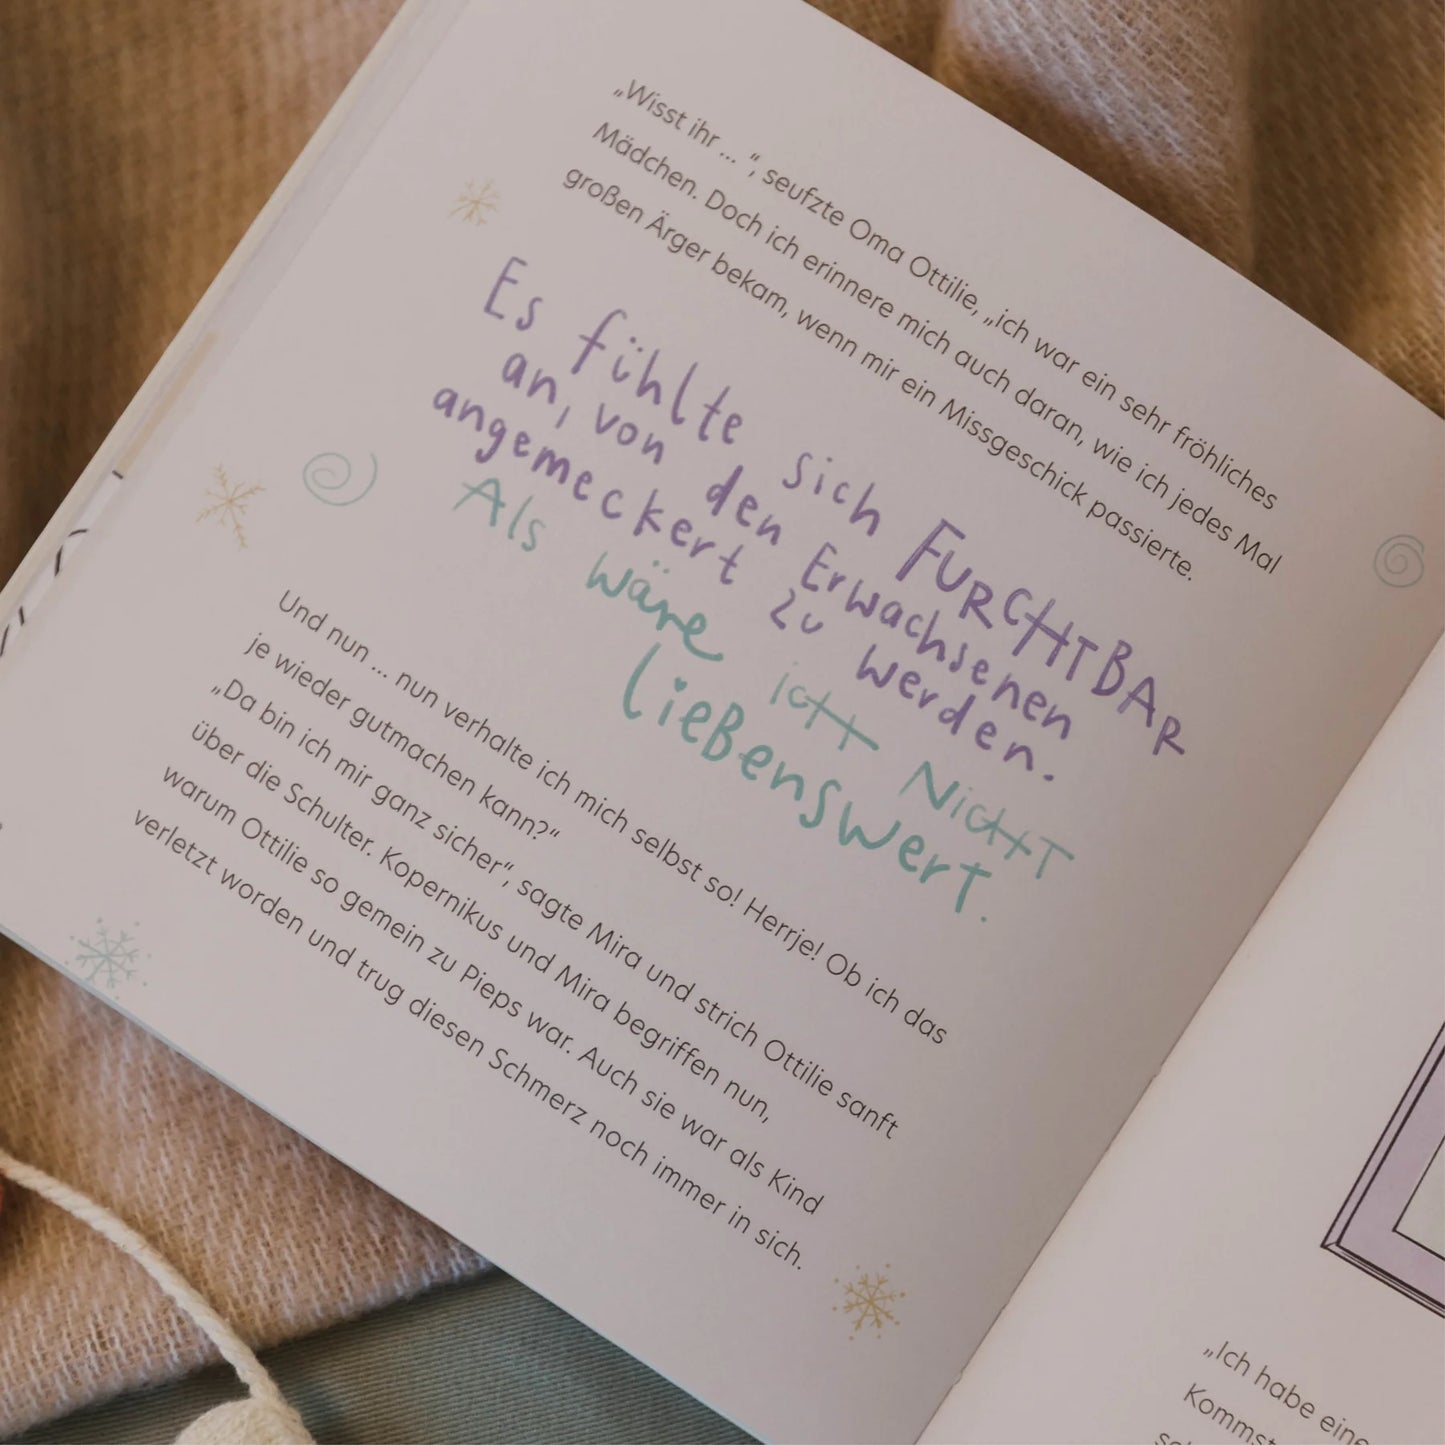 „Wisst ihr ... “, seufzte Oma Ottilie, „ich war ein sehr fröhliches
Mädchen. Doch ich erinnere mich auch daran, wie ich jedes Mal
großen Ärger bekam, wenn mir ein Missgeschick passierte.
Es fühlte sich FURCHTBAR
an, von den Erwachsenen
angemeckert zu werden.
Als wäre ich NICHT
liebenswert.
Und nun ... nun verhalte ich mich selbst so! Herrje! Ob ich das
je wieder gutmachen kann?“
„Da bin ich mir ganz sicher“, sagte Mira und strich Ottilie sanft
über die Schulter. Kopernikus und Mira begriffen nun,
warum Ottilie so gemein zu Pieps war. Auch sie war als Kind
verletzt worden und trug diesen Schmerz noch immer in sich.
„Ich habe eine